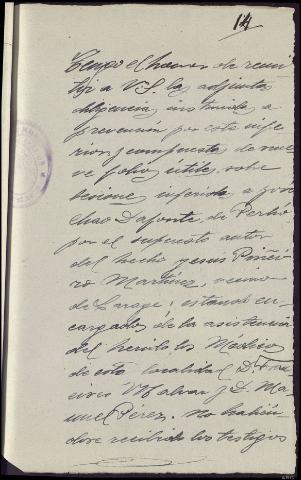 14
Tengo el honor de remi-
tir a V.S. las adjuntas
diligencias instruidas a
prevención por esta infe-
rior y compuesta de nue-
ve folios útiles, sobre
lesiones inferidas a Jose
Chao Dafonte, de Perbó,
por el supuesto autor
del hecho Jesus Piñei-
ro Martinez, vecino
de Larage; estando en-
cargados de la asistencia
del herido los Medicos
de esta localidad D. Fran-
cisco Villalvar y D. Ma-
nuel Pérez. No habién-
dose recibido los testigos